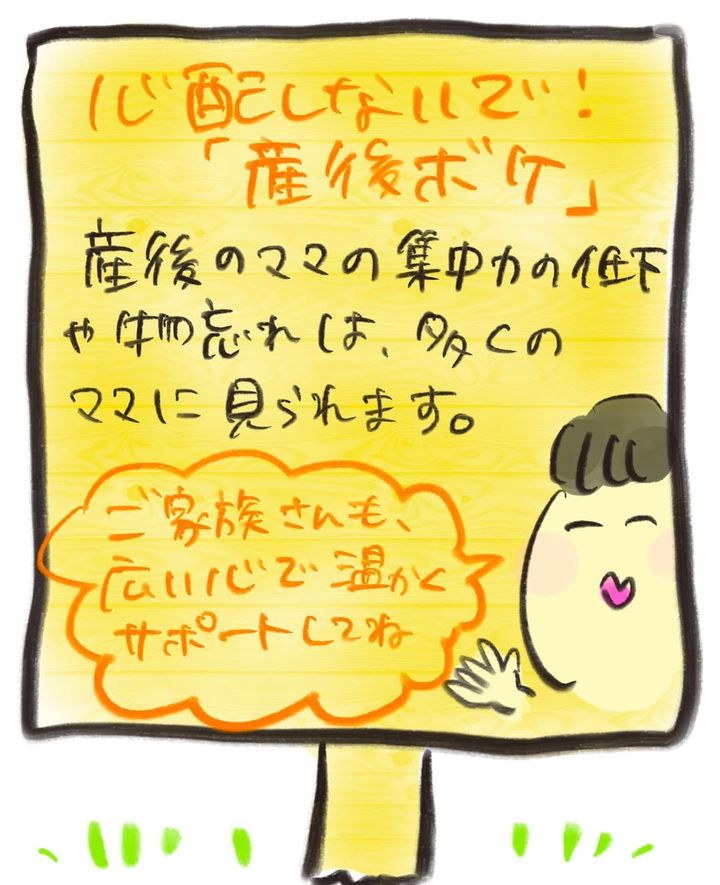 心配しないで!
「産後ボケ」
産後のママの集中力の低下
や物忘れは、多くの
ママに見られます。
ご家族さんも、
広い心で温かく
サポートしてね